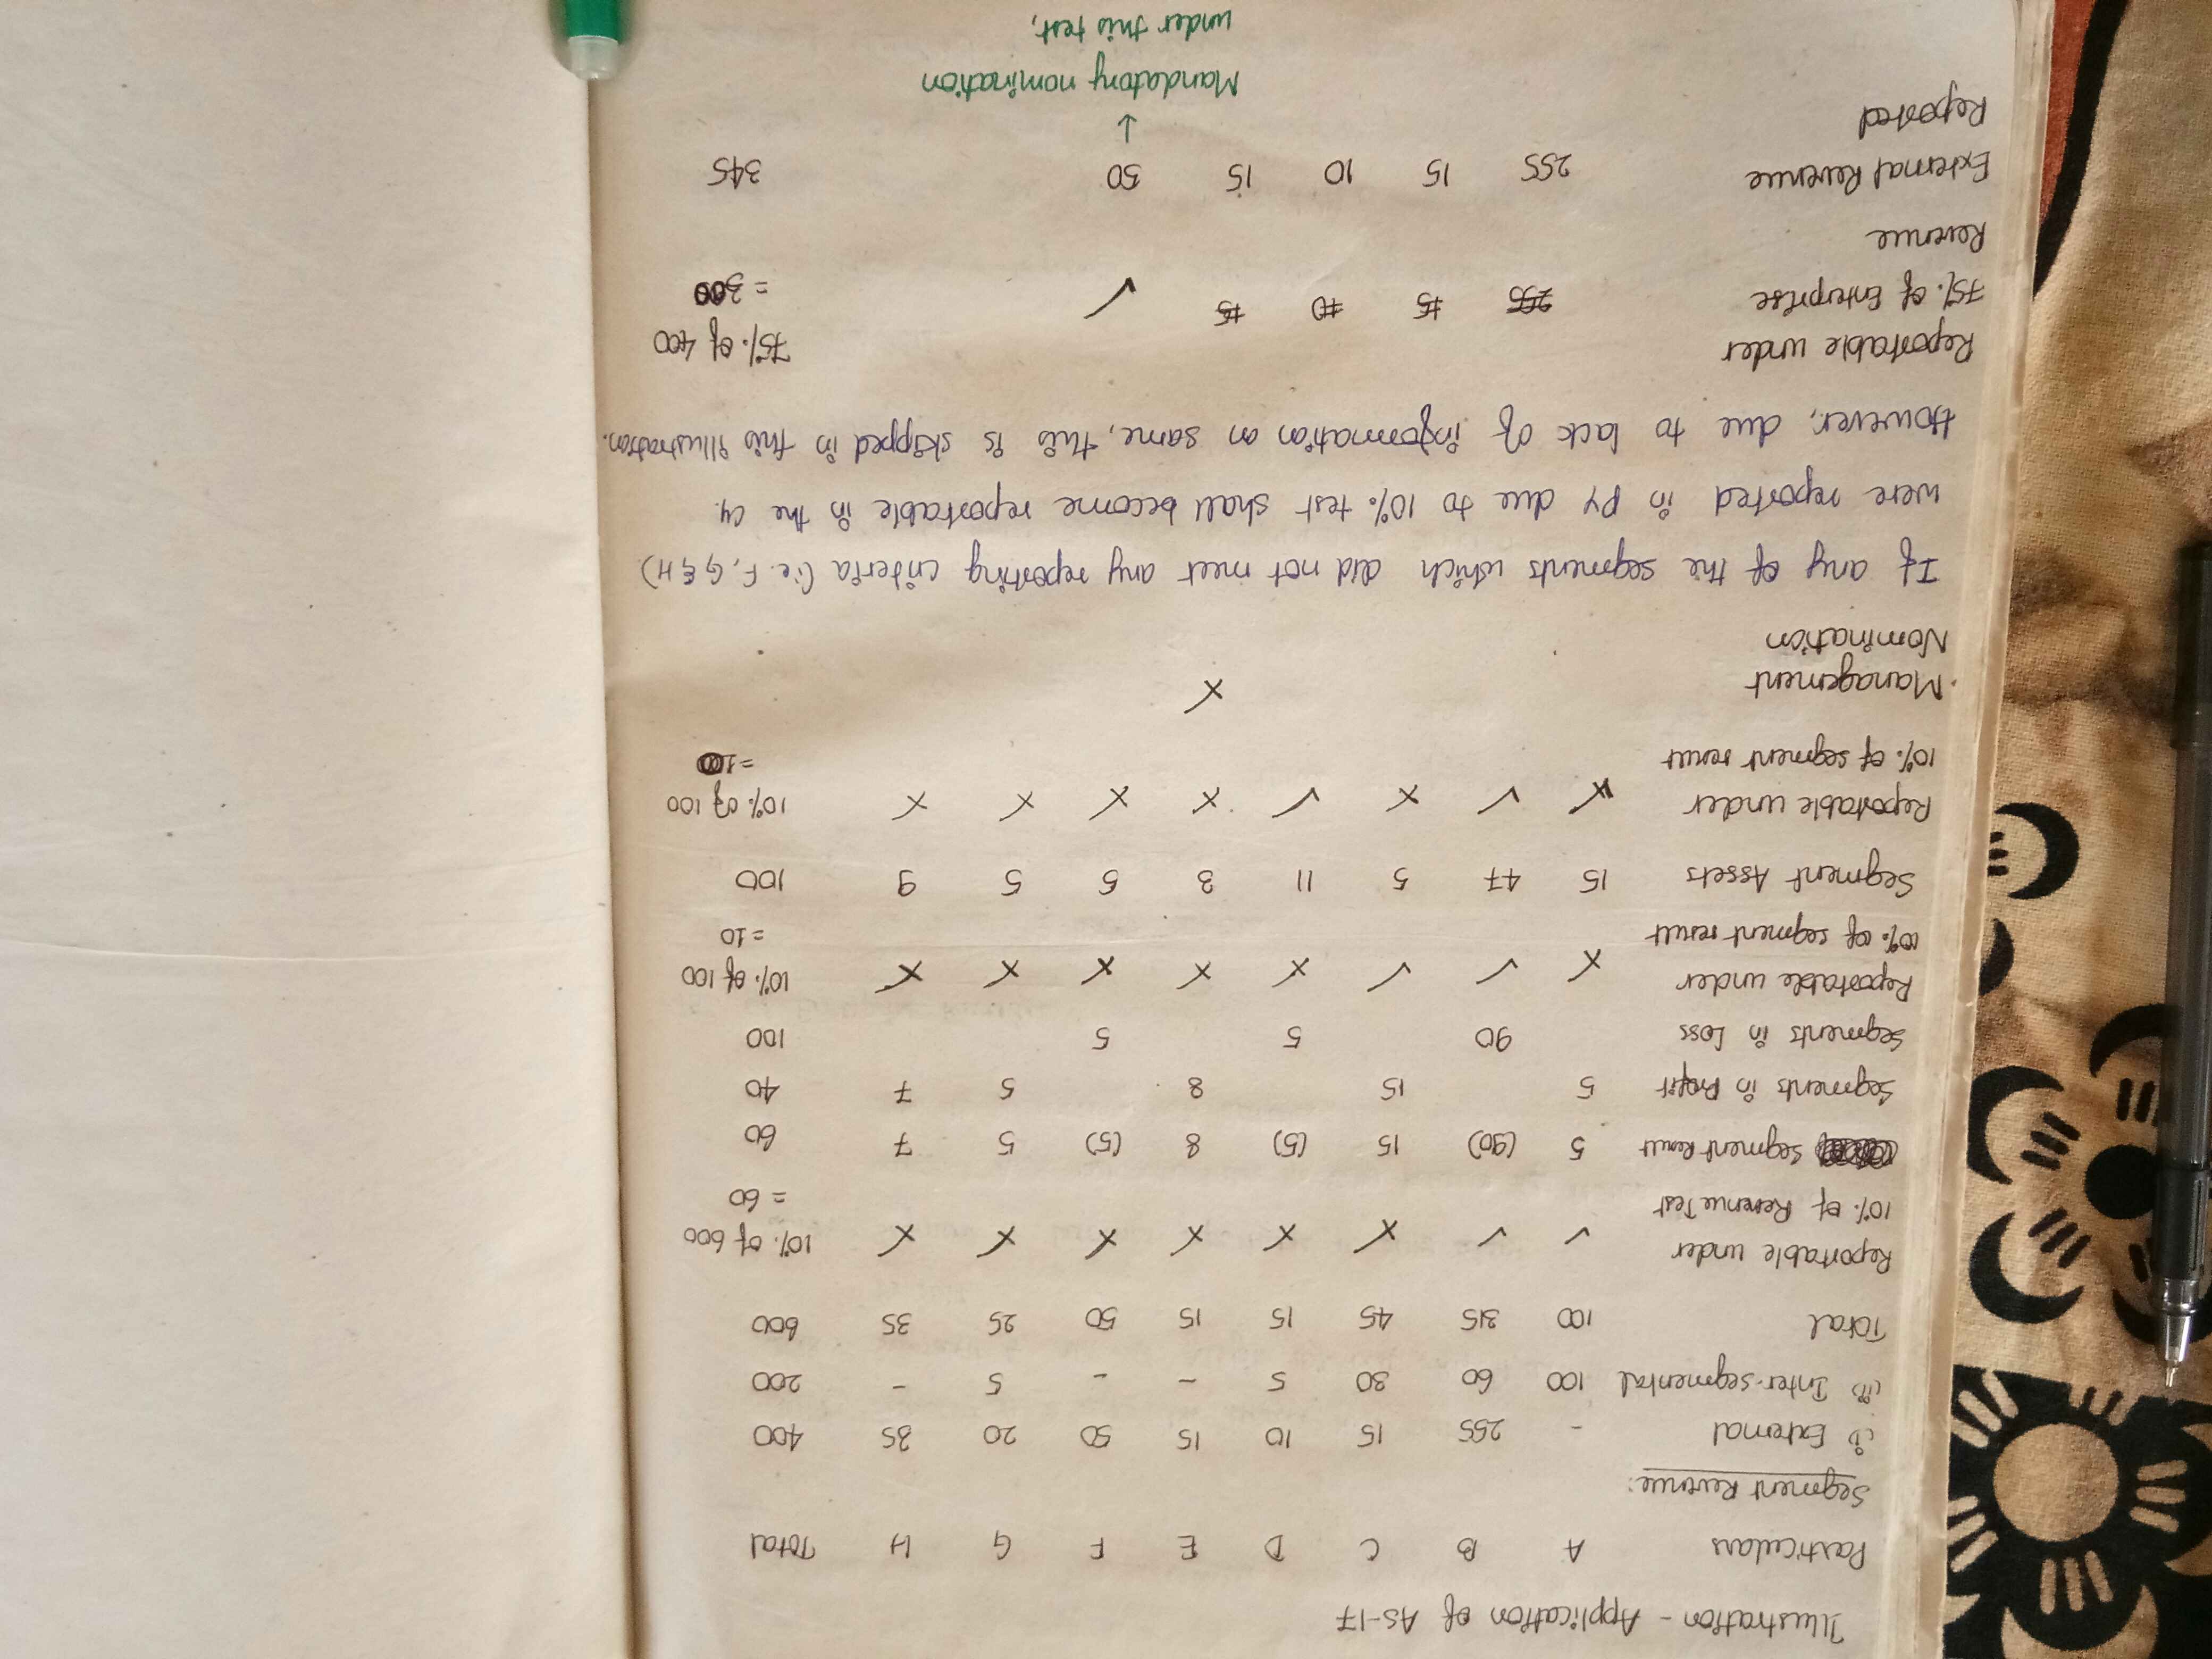 Illustration - Application of AS-17
Particulars A B C D E F G H Total
Segment Revenue:
(i) External - 255 15 10 15 50 20 35 400
(ii) Inter-segmental 100 60 30 5 - - 5 - 200
Total 100 315 45 15 15 50 25 35 600
Reportable under ✓ ✓ × × × × × × 10% of 600
10% of Revenue Test = 60
Segment Result 5 (90) 15 (5) 8 (5) 5 7 60
Segments in Profit 5 15 8 5 7 40
Segments in Loss 90 5 5 100
Reportable under × ✓ ✓ × × × × × 10% of 100
10% of segment result = 10
Segment Assets 15 47 5 11 3 5 5 9 100
Reportable under × ✓ × ✓ × × × × 10% of 100
10% of segment result = 10
Management ×
Nomination
If any of the segments which did not meet any reporting criteria (i.e. F, G & H)
were reported in PY due to 10% test shall become reportable in the cy.
However, due to lack of information on same, this is skipped in this illustration.
Reportable under 75% of 400
75% of Enterprise 255 15 10 15 ✓ = 300
Revenue
External Revenue 255 15 10 15 50 345
Reported ↓
Mandatory nomination
under this test,